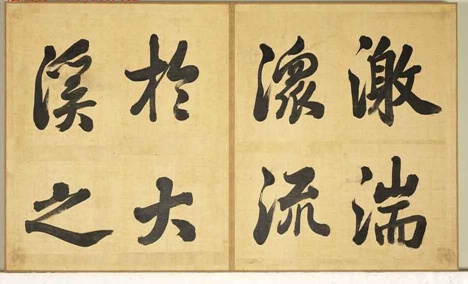 激湍
流
於大
溪之